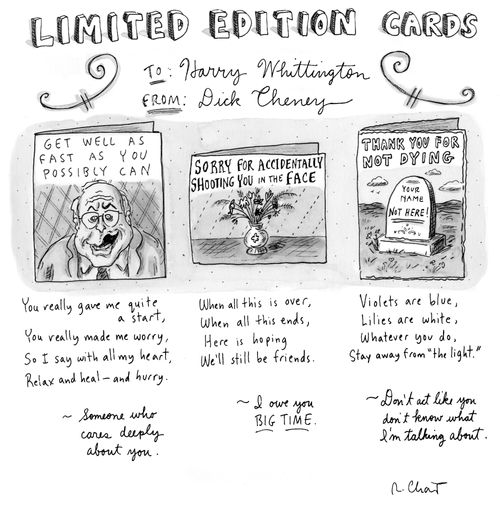 LIMITED EDITION CARDS
TO: Harry Whittington
FROM: Dick Cheney
GET WELL AS
FAST AS YOU
POSSIBLY CAN
You really gave me quite
a start,
You really made me worry,
So I say with all my heart,
Relax and heal – and hurry.
~ Someone who
cares deeply
about you.
SORRY FOR ACCIDENTALLY
SHOOTING YOU IN THE FACE
When all this is over,
When all this ends,
Here is hoping
We'll still be friends.
~ I owe you
BIG TIME.
THANK YOU FOR
NOT DYING
YOUR
NAME
NOT HERE!
Violets are blue,
Lilies are white,
Whatever you do,
Stay away from "the light."
~ Don't act like you
don't know what
I'm talking about.
R. Chast